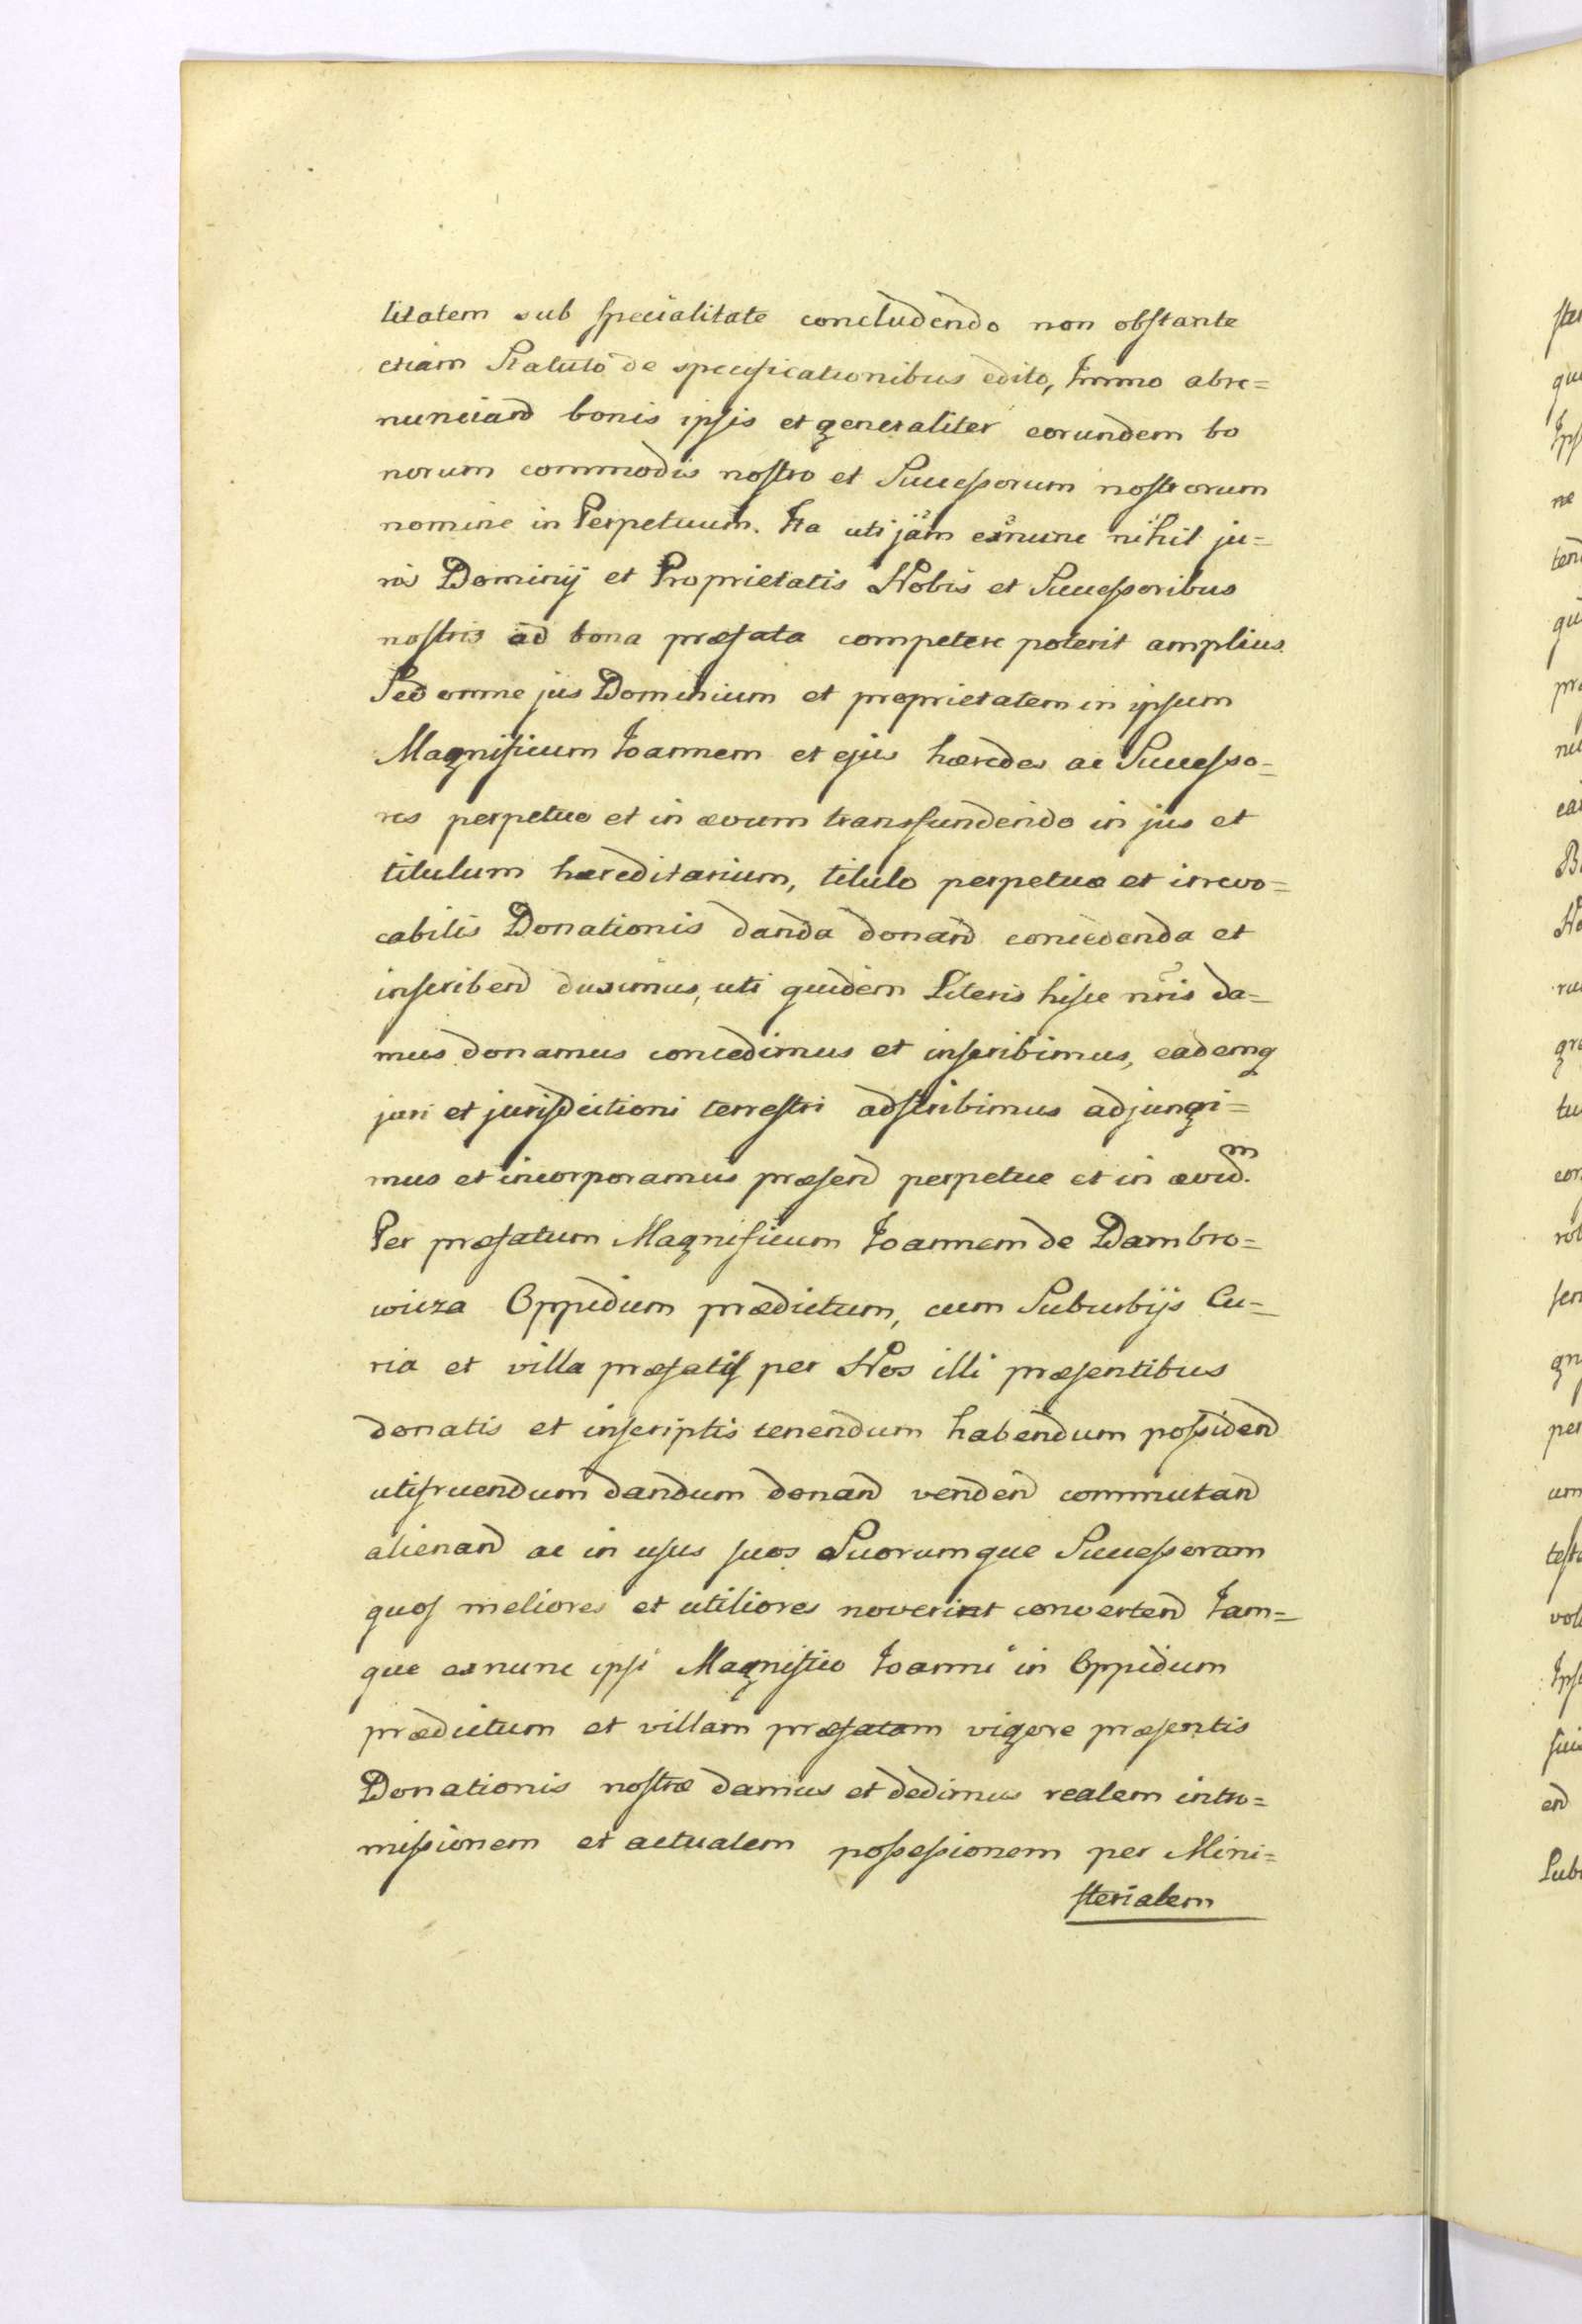 litatem sub specialitate concludendo non obstante
etiam Statuto de specificationibus edito, Immo abre=
nunciand bonis ipsis et generaliter eorundem bo
norum commodis nostro et Successorum nostrorum
nomine in Perpetuum. Ita uti jam exnunc nihil ju=
ris Dominij et Proprietatis Nobis et Successoribus
nostris ad bona præfata competere poterit amplius.
Sed omne jus Dominium et proprietatem in ipsum
Magnificum Joannem et ejus hæredes ac Successo=
res perpetuo et in ævum transfundendo in jus et
titulum hæreditarium, titulo perpetuæ et irrevo=
cabilis Donationis danda donand concedenda et
inscribend duximus, uti quidem Literis hisce nris da=
mus donamus concedimus et inscribimus, eademq
juri et jurisdictioni terrestri adscribimus adjungi=
mus et incorporamus præsend perpetue et in ævum.
Per præfatum Magnificum Joannem de Dambro=
wicza Oppidum prædictum, cum Suburbijs Cu=
ria et villa præfatis per Nos illi præsentibus
donatis et inscriptis tenendum habendum possidend
utifruendum dandum donand vendend commutand
alienand ac in usus suos Suorumque Successorum
quos meliores et utiliores noverint convertend Jam=
que exnunc ipsi Magnifico Joanni in Oppidum
prædictum et villam præfatam vigore præsentis
Donationis nostræ damus et dedimus realem intro=
missionem et actualem possessionem per Mini=
sterialem